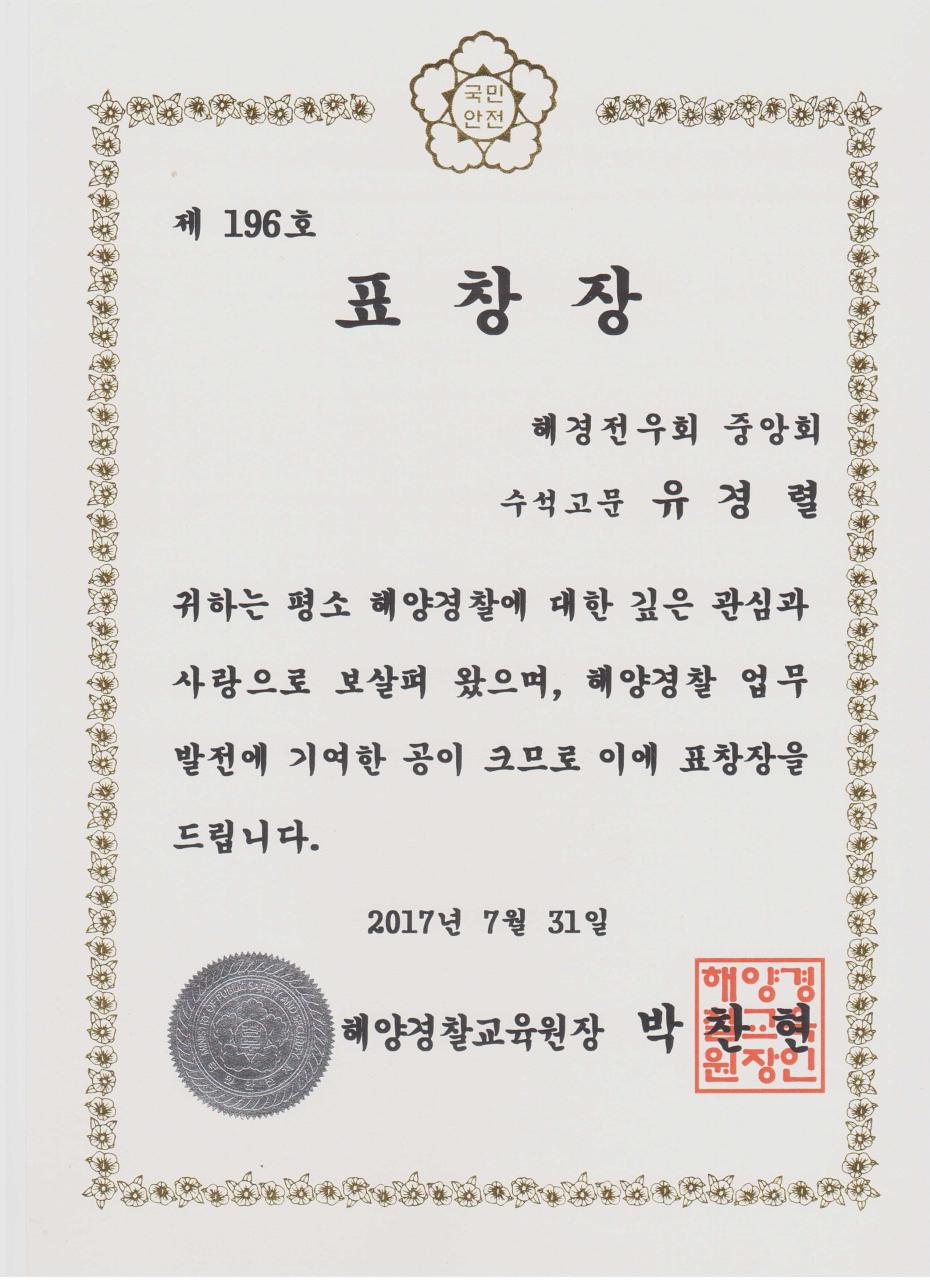 국민
안전
제 196호
표 창 장
해경전우회 중앙회
수석고문 유 경 렬
귀하는 평소 해양경찰에 대한 깊은 관심과
사랑으로 보살펴 왔으며, 해양경찰 업무
발전에 기여한 공이 크므로 이에 표창장을
드립니다.
2017년 7월 31일
MINISTRY OF PUBLIC SAFETY AND SECURITY
해양경찰교육원장 박 찬 현
해양경
찰교육
원장인